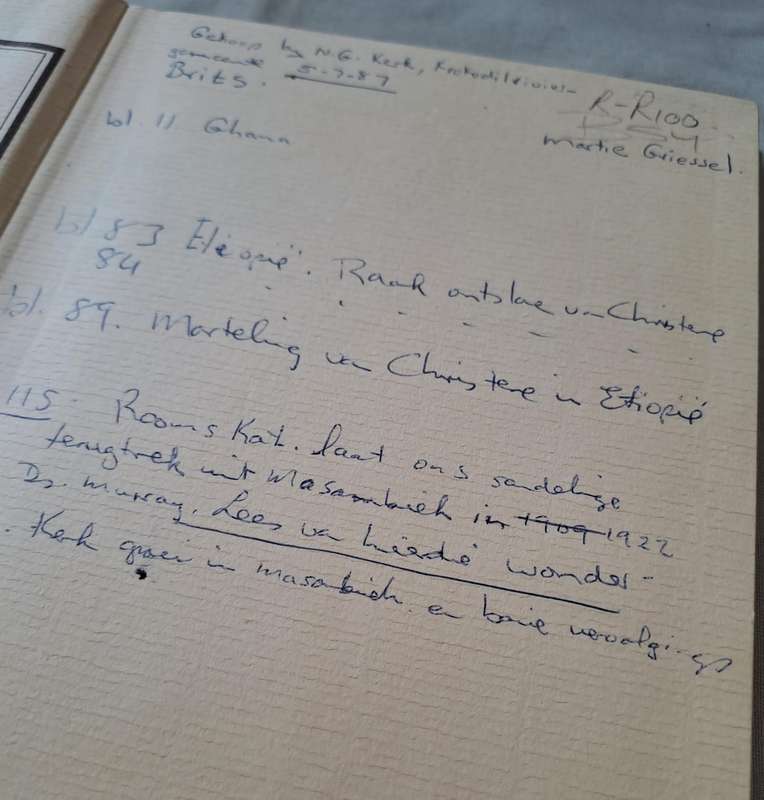 Gekoop by N.G. Kerk, Krokodilrivier-
gemeente 5-7-87
Brits.
R-R100
Martie Griessel.
bl. 11 Ghana
bl 83 Etiopië. Raak ontslae van Christene
84 " " " " " "
bl. 89. Marteling van Christene in Etiopië
115 - Rooms Kat. laat ons sendelinge
terugtrek uit Masambiek in 1909 1922
Ds. Murray. Lees van hierdie wonder-
. Kerk groei in Masambiek. en baie vervolgings